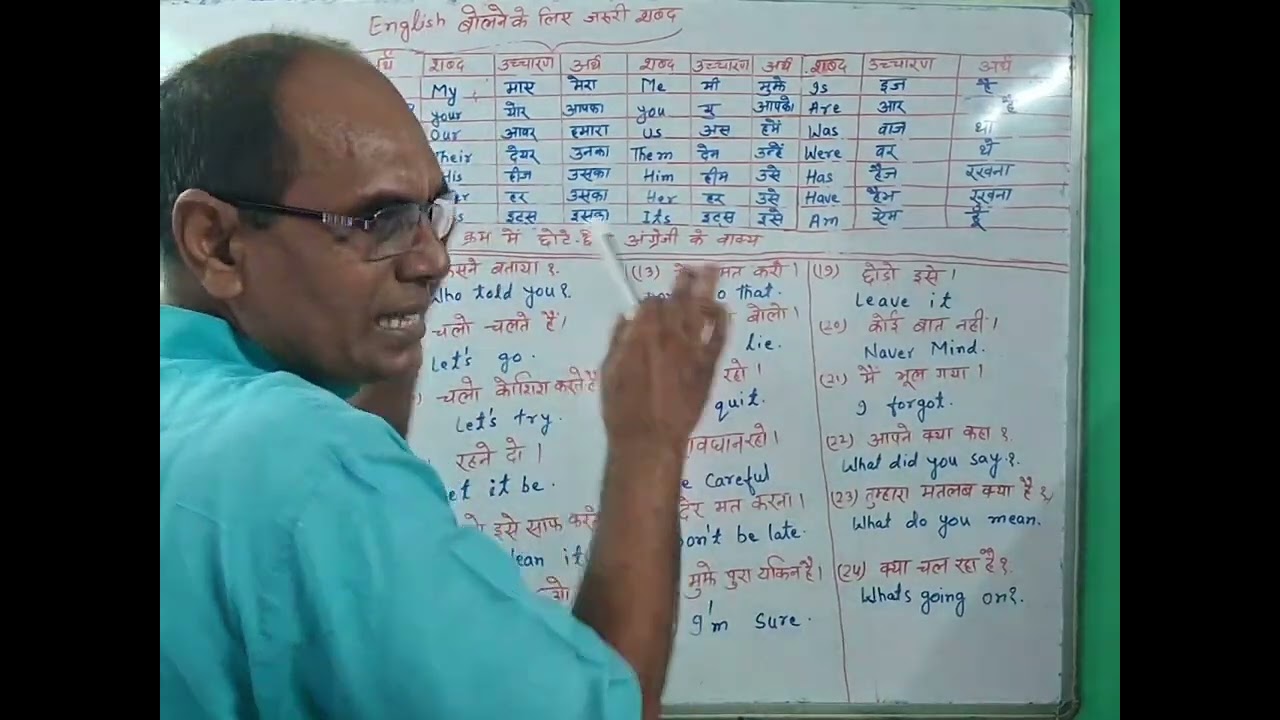 English बोलने के लिए जरुरी शब्द
शब्द उच्चारण अर्थ शब्द उच्चारण अर्थ शब्द उच्चारण अर्थ
My माए मेरा Me मी मुझे Is इज है
your योर आपका you यु आपको Are आर है
Our आवर हमारा Us अस हमें Was वाज था
Their देयर उनका Them देम उन्हें Were वर थे
His हीज उसका Him हीम उसे Has हैज रखना
हर उसका Her हर उसे Have हैभ रखना
इट्स इसका Its इट्स इसे Am ऐम हूँ
क्रम में छोटे-छ अंग्रेजी के वाक्य
किसने बताया ?
Who told you?
चलो चलते हैं।
Let's go.
चलो कोशिश करते है
Let's try.
रहने दो ।
let it be.
इसे साफ करते
lean it
(13) मत करो ।
o that.
बोलो ।
lie.
रहो ।
quit.
सावधान रहो ।
Be Careful
देर मत करना ।
Don't be late.
मुझे पुरा यकिन है ।
I'm Sure.
(19) छोडो इसे ।
Leave it
(20) कोई बात नहीं ।
Naver Mind.
(21) मैं भूल गया ।
I forgot.
(22) आपने क्या कहा ?
What did you say.?.
(23) तुम्हारा मतलब क्या है ?
What do you mean.
(24) क्या चल रहा है ?
Whats going on?.